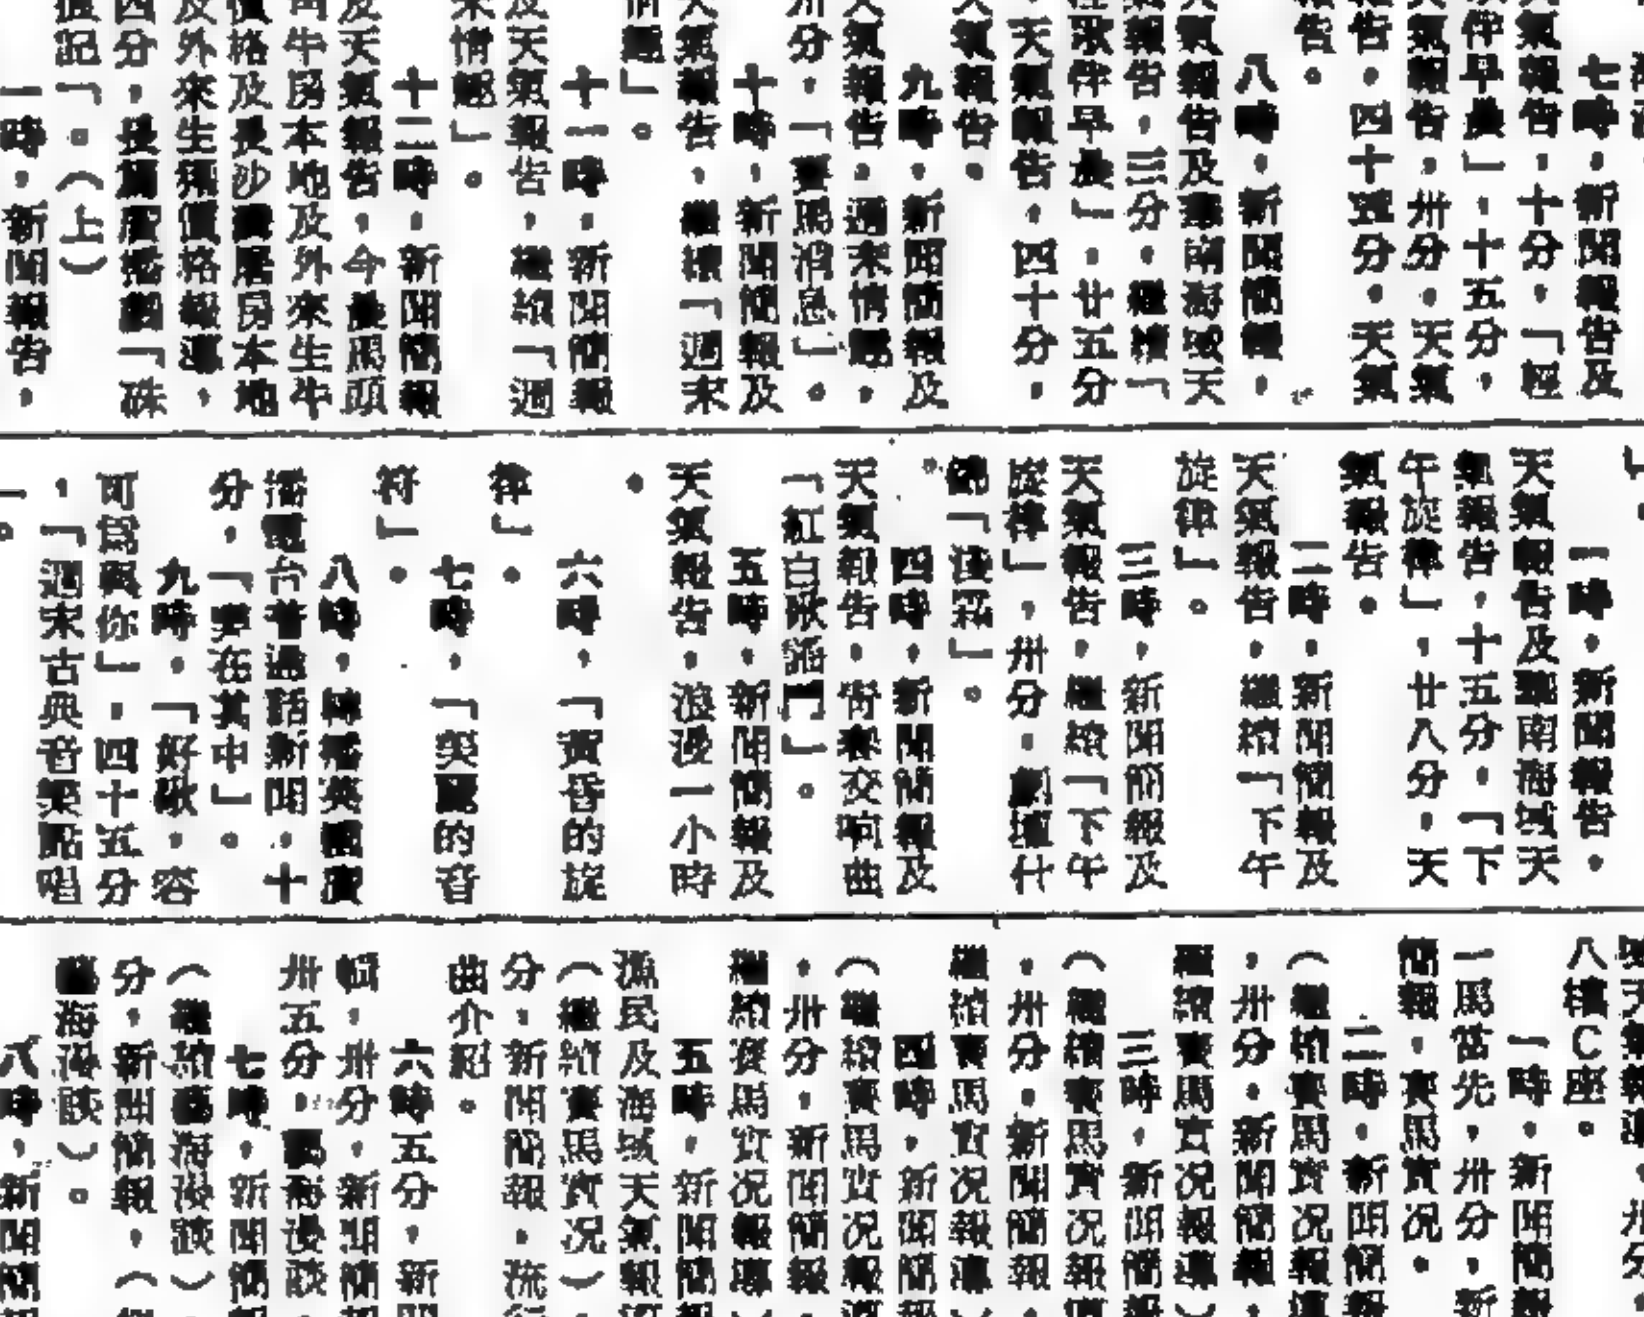 七時，新聞報告及
天氣報告，十分，「輕
歌伴早晨」，十五分，
天氣報告，卅分，天氣
報告，四十五分，天氣
報告。
八時，新聞簡報，
天氣報告及華南海域天
氣報告，三分，繼續「
輕歌伴早晨」，廿五分
，天氣報告，四十分，
天氣報告。
九時，新聞簡報及
天氣報告。週末情趣，
卅分，「賽馬消息」。
十時，新聞簡報及
天氣報告，繼續「週末
情趣」。
十一時，新聞簡報
及天氣報告，繼續「週
末情趣」。
十二時，新聞簡報
及天氣報告，今晨馬頭
角牛房本地及外來生牛
價格及長沙灣屠房本地
及外來生豬價格報導，
四分，長篇廣播劇「硃
痕記」。（上）
一時，新聞報告，
一時，新聞報告。
天氣報告及華南海域天
氣報告，十五分，「下
午旋律」，廿八分，天
氣報告。
二時，新聞簡報及
天氣報告，繼續「下午
旋律」。
三時，新聞簡報及
天氣報告，繼續「下午
旋律」，卅分，劇壇什
「漢霖」。
四時，新聞簡報及
天氣報告，青春交响曲
「紅白歌謠門」。
五時，新聞簡報及
天氣報告，浪漫一小時
。
六時，「黃昏的旋
律」。
七時，「美麗的音
符」。
八時，轉播英國廣
播電台普通話新聞，十
分，「樂在其中」。
九時，「好歌，容
可爲與你」，四十五分
，「週末古典音樂點唱
」。
域天氣報導，卅分
八樓C座。
一時，新聞簡報
一馬當先，卅分，新
簡報，賽馬實況。
二時，新聞簡報
（繼續賽馬實况報導
，卅分，新聞簡報，
繼續賽馬實况報導）
三時，新聞簡報
（繼續賽馬實况報導
，卅分，新聞簡報，
繼續賽馬實况報導）
四時，新聞簡報
（繼續賽馬實况報導
，卅分，新聞簡報
繼續賽馬實况報導）
五時，新聞簡報
漁民及海域天氣報導
（繼續賽馬實况）
分，新聞簡報，流行
曲介紹。
六時五分，新聞
輯，卅分，新聞簡報
卅五分，藝海漫談
七時，新聞簡報
（繼續藝海漫談）
分，新聞簡報，（繼
藝海漫談）。
八時，新聞簡報